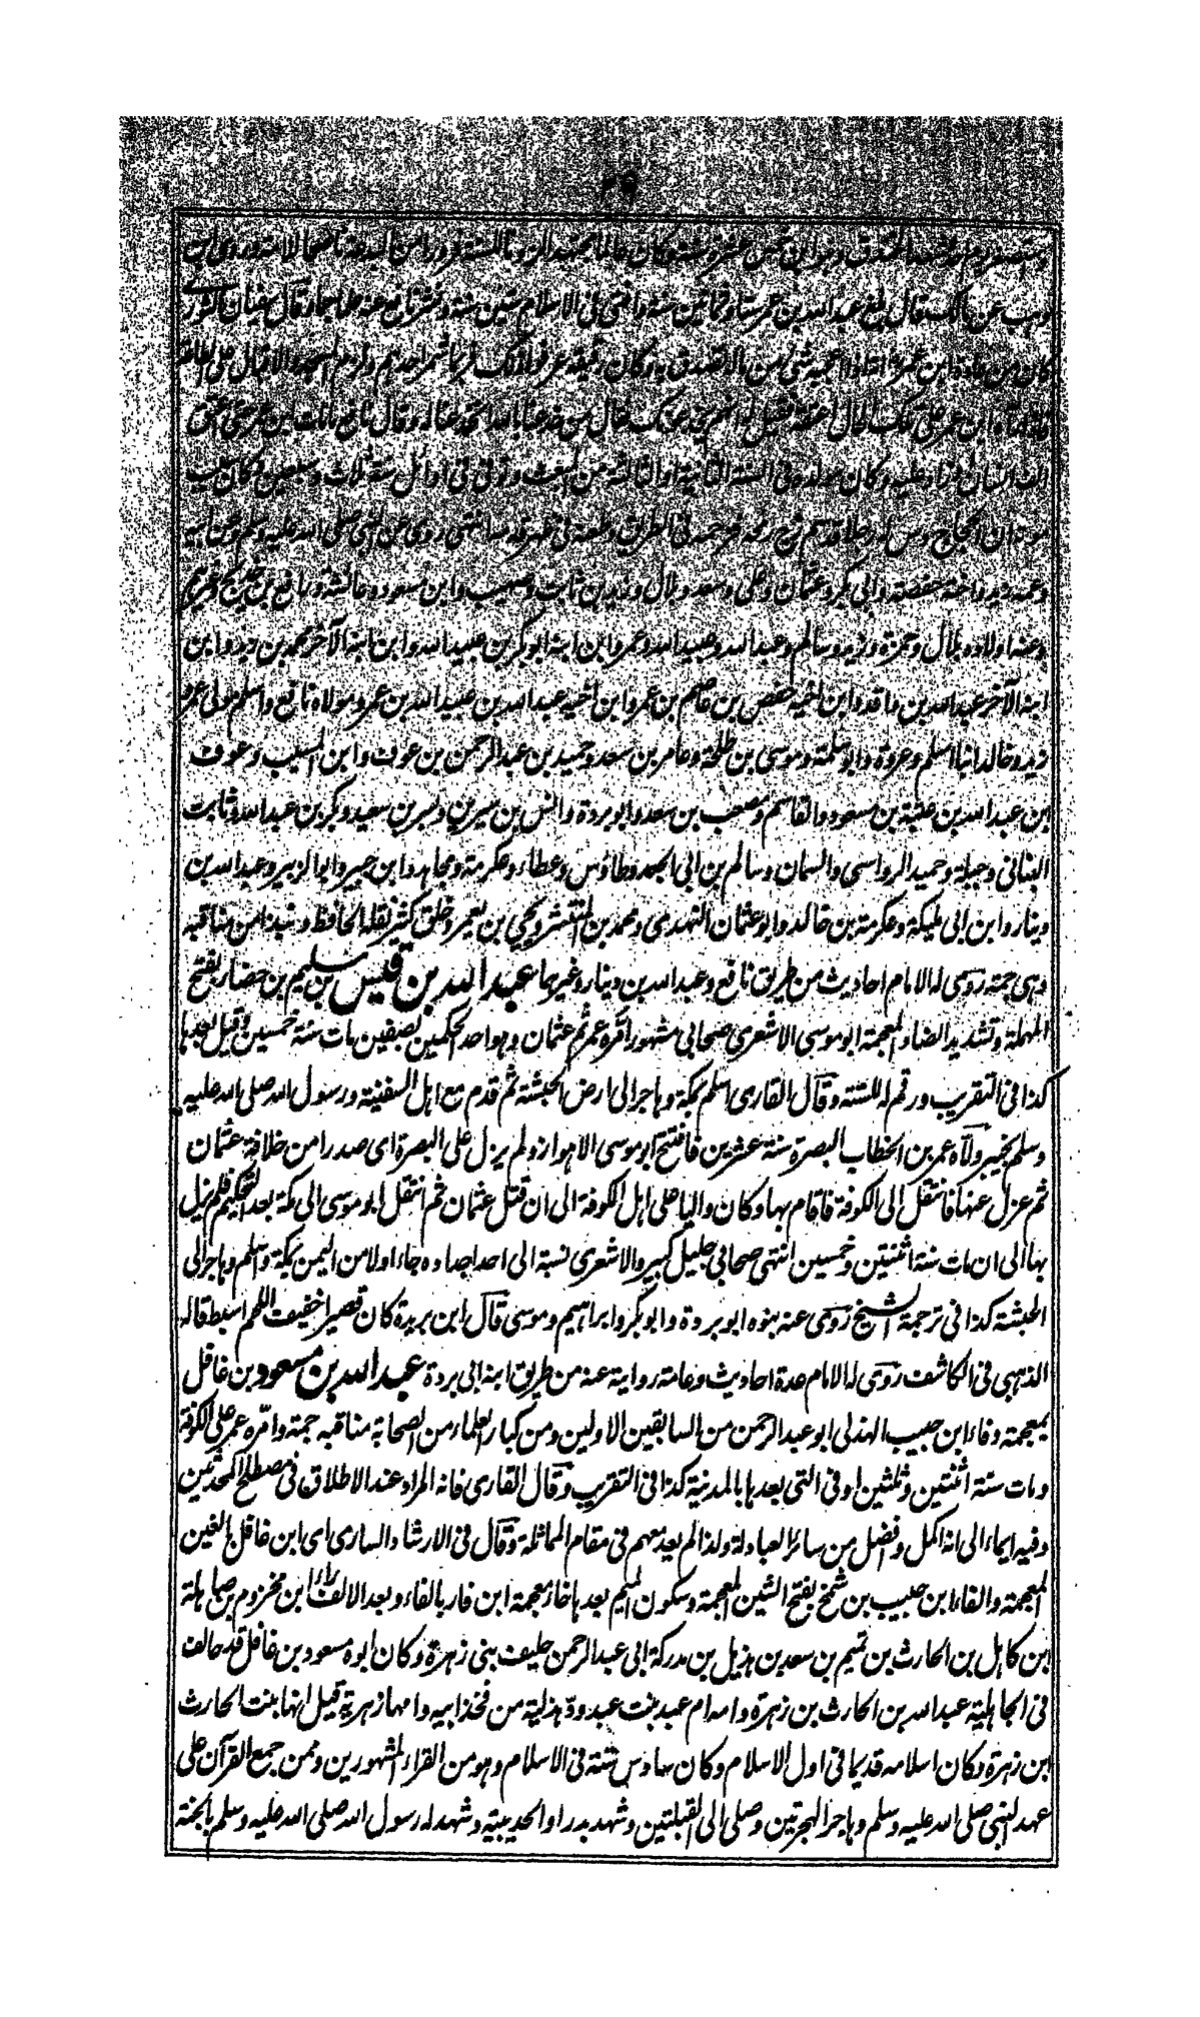 وهب عن مالك قال بلغ عبد الله بن عمر ستا وثمانين سنة وافتى فى الاسلام ستين سنة ونشر نافع عنه علما جما وقال سفيان الثورى
كان من عادة ابن عمر انه اذا اعجبه شئ من ماله تصدق به وكان رقيقه عرفوا ذلك فربما شمر احدهم ولزم المسجد والاقبال على الطاعة
فاذا راه ابن عمر على تلك الحال اعتقه فقيل له انهم يخدعونك فقال من خدعنا بالله انخدعنا له وقال نافع ما مات ابن عمر حتى اعتق
الف انسان او زاد عليه وكان مولده فى السنة الثانية او الثالثة من المبعث وتوفى فى اوائل سنة ثلاث وسبعين وكان سبب
موته ان الحجاج دس له رجلا قد سم زج رمحه فزحمه فى الطريق وطعنه فى ظهر قدمه انتهى روى عن النبى صلى الله عليه وسلم وعن ابيه
وعمه زيد واخته حفصة وابى بكر وعثمان وعلى وسعد وبلال وزيد بن ثابت وصهيب وابن مسعود وعائشة ورافع بن خديج وغيرهم
وعنه اولاده بلال وحمزة وزيد وسالم وعبد الله وعبيد الله وعمر وابن ابنه ابو بكر بن عبيد الله وابن ابنه الآخر محمد بن زيد وابن
ابنه الآخر عبد الله بن واقد وابن اخيه حفص بن عاصم بن عمر وابن اخيه عبد الله بن عبيد الله بن عمر ومولاه نافع واسلم مولى عمر
زيد وخالد ابنا اسلم وعروة وابو سلمة وموسى بن طلحة وعامر بن سعد وحميد بن عبد الرحمن بن عوف وابن المسيب وعوف
ابن عبد الله بن عتبة بن مسعود والقاسم ومصعب بن سعد وابو بردة وانس بن سيرين وبسر بن سعيد وبكر بن عبد الله وثابت
البنانى وجبلة وحميد الرواسى والسمان وسالم بن ابى الجعد وطاؤس وعطاء وعكرمة ومجاهد وابن جبير وابو الزبير وعبد الله بن
دينار وابن ابى مليكة وعكرمة بن خالد وابو عثمان النهدى ومحمد بن المنتشر ويحيى بن يعمر وخلق كثير نقله الحافظ ونبذا من مناقبه
وهى جمة روى له الامام احاديث من طريق نافع وعبد الله بن دينار وغيرهما عبد الله بن قيس بن سليم بن حضار بفتح
المهملة وتشديد الضاد المعجمة ابو موسى الاشعرى صحابى مشهور امره عمر ثم عثمان وهو احد الحكمين بصفين مات سنة خمسين وقيل بعدها
كذا فى التقريب ورقم له للستة وقال القارى اسلم بمكة وهاجر الى ارض الحبشة ثم قدم مع اهل السفينة ورسول الله صلى الله عليه
وسلم بخيبر ولاه عمر بن الخطاب البصرة سنة عشرين فافتتح ابو موسى الاهواز ولم يزل على البصرة اى صدرا من خلافة عثمان
ثم عزل عنها فانتقل الى الكوفة فاقام بها وكان واليا على اهل الكوفة الى ان قتل عثمان ثم انتقل ابو موسى الى مكة بعد التحكيم فلم يزل
بها الى ان مات سنة اثنتين وخمسين انتهى صحابى جليل كبير والاشعرى نسبة الى احد اجداده جاء اولا من اليمن بمكة وسلم وهاجر الى
الحبشة كذا فى ترجمة الشيخ روى عنه بنوه ابو بردة وابو بكر وابراهيم وموسى قال ابن بريدة كان قصيرا خفيف اللحم اسبط قاله
الذهبى فى الكاشف روى له الامام عدة احاديث وعامة رواية عنه من طريق ابنه ابى بردة عبد الله بن مسعود بن غافل
بمعجمة وفاء ابن حبيب الهذلى ابو عبد الرحمن من السابقين الاولين ومن كبار العلماء من الصحابة مناقبه جمة وامره عمر على الكوفة
ومات سنة اثنتين وثلثين او فى التى بعدها بالمدينة كذا فى التقريب وقال القارى فانه المراد عند الاطلاق فى مصطلح المحدثين
وفيه ايماء الى انه اكمل وافضل من سائر العبادلة ولذا لم يعد معهم فى مقام المماثلة وقال فى الارشاد السارى اى ابن غافل بالغين
المعجمة والفاء ابن حبيب بن شمخ بفتح الشين المعجمة وسكون الميم بعدها خاء معجمة ابن فار بالفاء وبعد الالف راء ابن مخزوم بن صاهلة
ابن كاهل بن الحارث بن تميم بن سعد بن هذيل بن مدركة ابى عبد الرحمن حليف بنى زهرة وكان ابوه مسعود بن غافل قد حالف
فى الجاهلية عبد الله بن الحارث بن زهرة وامه ام عبد بنت عبد ود هذلية من فخذ ابيه وامها زهرية قيل انها بنت الحارث
ابن زهرة وكان اسلامه قديما فى اول الاسلام وكان سادس ستة فى الاسلام وهو من القراء المشهورين وممن جمع القرآن على
عهد النبى صلى الله عليه وسلم وهاجر الهجرتين وصلى الى القبلتين وشهد بدرا والحديبية وشهد له رسول الله صلى الله عليه وسلم بالجنة